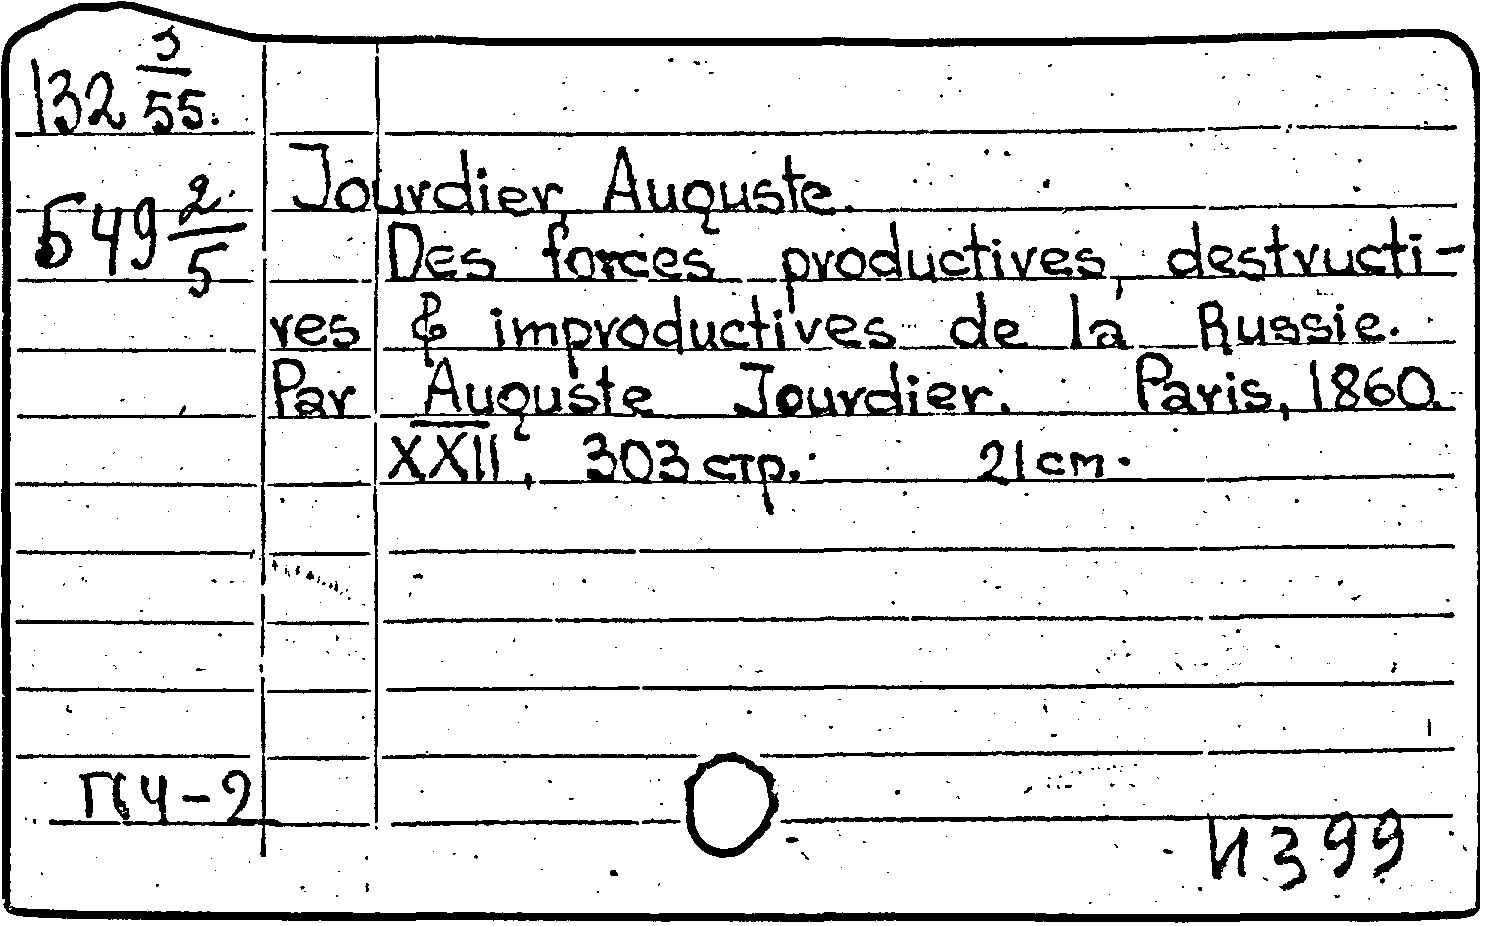 132 3/55.
549 2/5
Jourdier, Auguste.
Des forces productives, destructi-
ves & improductives de la Russie.
Par Auguste Jourdier. Paris, 1860.
XXII, 303 стр. 21 cm.
П64-2
И399